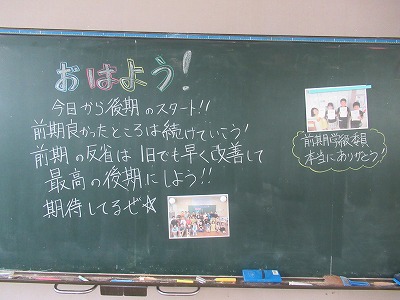 おはよう!
今日から後期のスタート!!
前期良かったところは続けていこう!
前期の反省は1日でも早く改善して
最高の後期にしよう!!
期待してるぜ☆
前期学級委員
本当にありがとう!